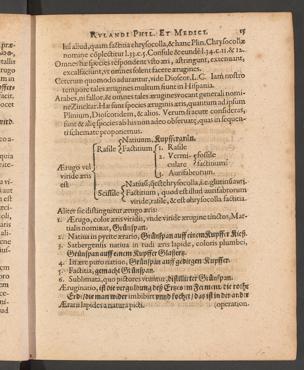 RVLANDI PHIL. ET MEDICI. 15
lus aliud, quam factitia chrysocolla, & hanc Plin. Chrysocollæ
nomine cõplectitur l.33.c.5. Consule & eundẽ l.34.c.11. & 12.
Omnes hæ species respondent visto æri, astringunt, extenuant,
excalfaciunt, vt omnes solent facere ærugines.
Ceterum quomodo adurantur, vide Dioscor. L.C. Iam nostro
tempore tales ærugines multum sunt in Hispania.
Arabes, ni fallor, & omnes tales ærugines vocant generali nomi-
ne Ziniar. Hæ sunt species æruginis æris, quantum ad ipsum
Plinium, Dioscoridem, & alios. Verum si acute consideres,
sunt & aliæ species ab his non adeo obseruatæ, quas in sequen-
ti schemate proponemus.
Natiuum, Kupffergrün.
Rasile Factitium
1. Rasile
2. Vermi-
culare
fossile
factitium
3. Aurifabrorum.
Ærugo vel
viride æris
est
Scissile
Natiuũ, est chrysocolla, i.e. glutinũ auri.
Factitium, quod est illud aurifabrorum
viride, rasile, & est chrysocolla factitia.
Aliter sic distinguitur ærugo æris:
1. Ærugo, color æris viridis, vnde viride ærugine tinctus, Mat-
tialis nominat, Grünspan.
2. Natiua in pyrite ærario, Grünspan auff einem Kupffer Kieß.
3. Natiua in rudi æris lapide, coloris plumbei,
Grünspan auff einem Kupffer
4. In ære puro natiuo, Grünspan auff gediegen Kupffer.
5. Factitia, gemacht Grünspan.
6. Sublimata, quo pictores vtuntur, distillirter Grünspan.
Æruginatio, ist die verguldung deß Ertzes im die rothe
Erd/ die man wider imbibirt vnd kochet/ das ist in der ander
Æraria lapides a natura picti. (operation.